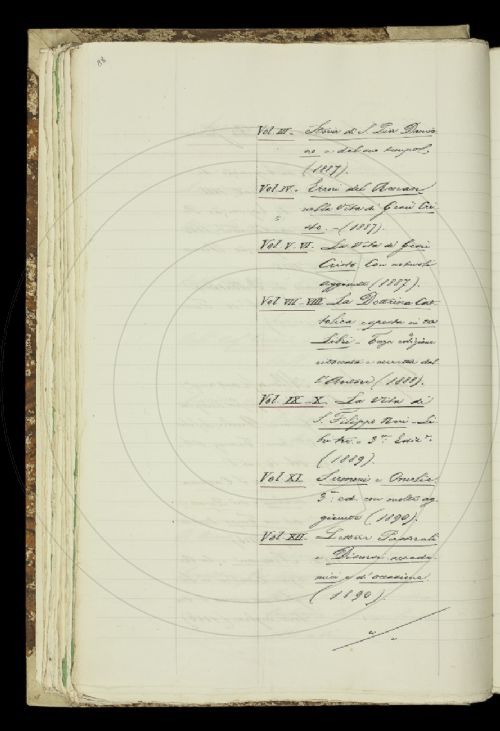 88
Vol. III. - Storia di S. Pier Damia
no e del suo tempo.
(1887).
Vol. IV. - Errori del Renan
nella Vita di Gesù Cri
sto. - (1887).
Vol. V. VI. La Vita di Gesù
Cristo. Con notevoli
aggiunte (1887).
Vol. VII. VIII. La Dottrina Cat
tolica esposta in tre
Libri - Terza edizione
ritoccata e accresciuta dal
l'Autore (1888).
Vol. IX - X. La Vita di
S. Filippo Neri - Li
bri tre. 3ª. Ediz.
(1889).
Vol. XI. Sermoni e Omelie.
3ª. ed. con molte ag
giunte (1890).
Vol. XII. Lettere Pastorali
e Discorsi accade
mici e di occasione.
(1890).